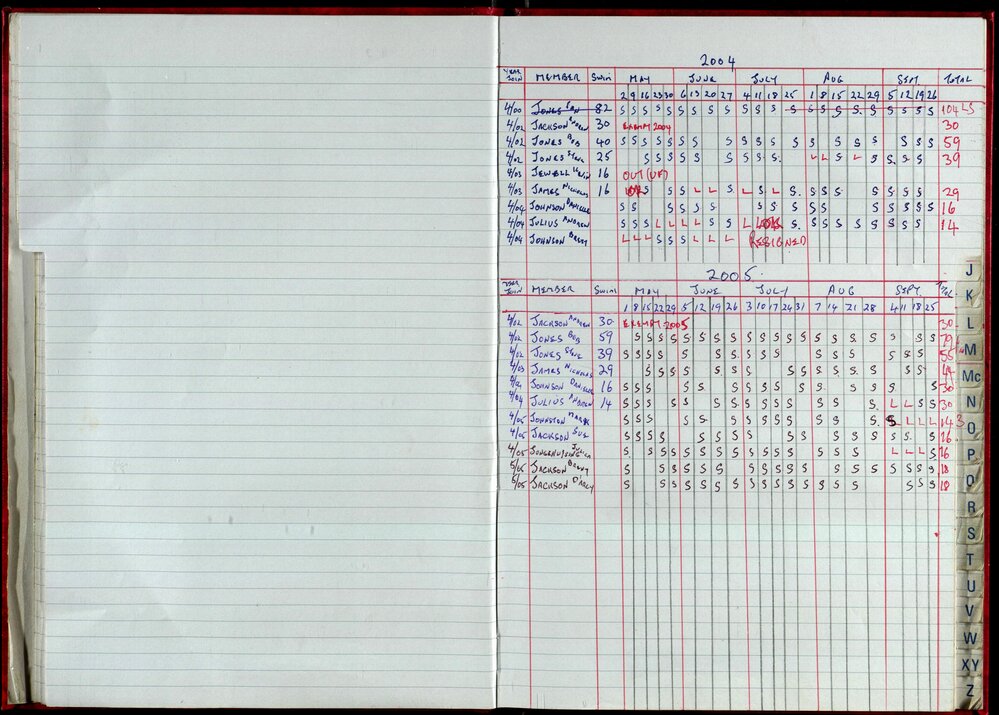 2004
YEAR JOIN MEMBER SWIM MAY JUNE JULY AUG SEPT TOTAL
2 9 16 23 30 6 13 20 27 4 11 18 25 1 8 15 22 29 5 12 19 26
4/00 JONES IAN 82 S S S S S S S S S S S S S S S S S S S S S S 104 LS
4/02 JACKSON ANDREW 30 EXEMPT 2004 30
4/02 JONES BOB 40 S S S S S S S S S S S S S S S S S S S 59
4/02 JONES STEVE 25 S S S S S S S S S L L S L S S S S 39
4/03 JEWELL KEVIN 16 OUT (UF)
4/03 JAMES NICHOLAS 16 S S S L L S L S L S S S S S S S S 29
4/04 JOHNSON DANIELLE S S S S S S S S S S S S S S S S 16
4/04 JULIUS ANDREW S S S L L L L S S L S S S S S S S S S 14
4/04 JOHNSON BRETT L L L S S S L L L RESIGNED
2005
YEAR JOIN MEMBER SWIM MAY JUNE JULY AUG SEPT TOTAL
1 8 15 22 29 5 12 19 26 3 10 17 24 31 7 14 21 28 4 11 18 25
4/02 JACKSON ANDREW 30 EXEMPT 2005 30
4/02 JONES BOB 59 S S S S S S S S S S S S S S S S S S S S 79
4/02 JONES STEVE 39 S S S S S S S S S S S S S S S S 55
4/03 JAMES NICHOLAS 29 S S S S S S S S S S S S S S S 44
4/04 JOHNSON DANIELLE 16 S S S S S S S S S S S S S S 30
4/04 JULIUS ANDREW 14 S S S S S S S S S S S S S S L L S S 30
4/05 JOHNSTON MARK S S S S S S S S S S S S S L L L L 14 3
4/05 JACKSON SUE S S S S S S S S S S S S S S S S 16
4/05 JULIEN S S S S S S S S S S S S S S S L L L S 16
5/05 JACKSON S S S S S S S S S S S S S S S S S S 18
5/05 JACKSON DARCY S S S S S S S S S S S S S S S S S S 18
J
K
L
M
Mc
N
O
P
Q
R
S
T
U
V
W
XY
Z